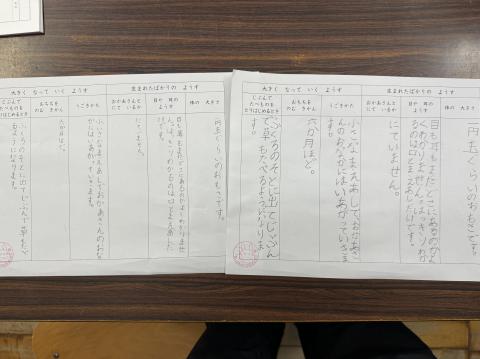 大きく なって いく ようす
生まれたばかりの ようす
じぶんで
たべものを
とりはじめるとき
おちちを
のむ きかん
うごきかた
おかあさんと
にて いるか
目や 耳の
ようす
体の 大きさ
円玉くらいのおもさです。
目も耳もまだどこにあるのかよくわかりませ
ん。
るのは口とまえあした
けです。
にてません。
小さなまえあしでおかあさんのおな
かにはいあがっていきます。
六か月ほど。
ふくろのそとに出てじぶんで草もたべ
るようになります。
大きく なって いく ようす
生まれたばかりの ようす
じぶんで
たべものを
とりはじめるとき
おちちを
のむ きかん
うごきかた
おかあさんと
にて いるか
目や 耳の
ようす
体の 大きさ
円玉くらいのおもさです。
目も耳もまだどこにあるのかよ
くわかりません。はっきりわか
るのは口とまえあしだけです。
にていません。
小さなまえあしで、おかあさ
んのおなかにはいあがっていきま
す。
六か月ほど。
ふくろのそとに出てじぶん
で草もたべるようになりま
す。